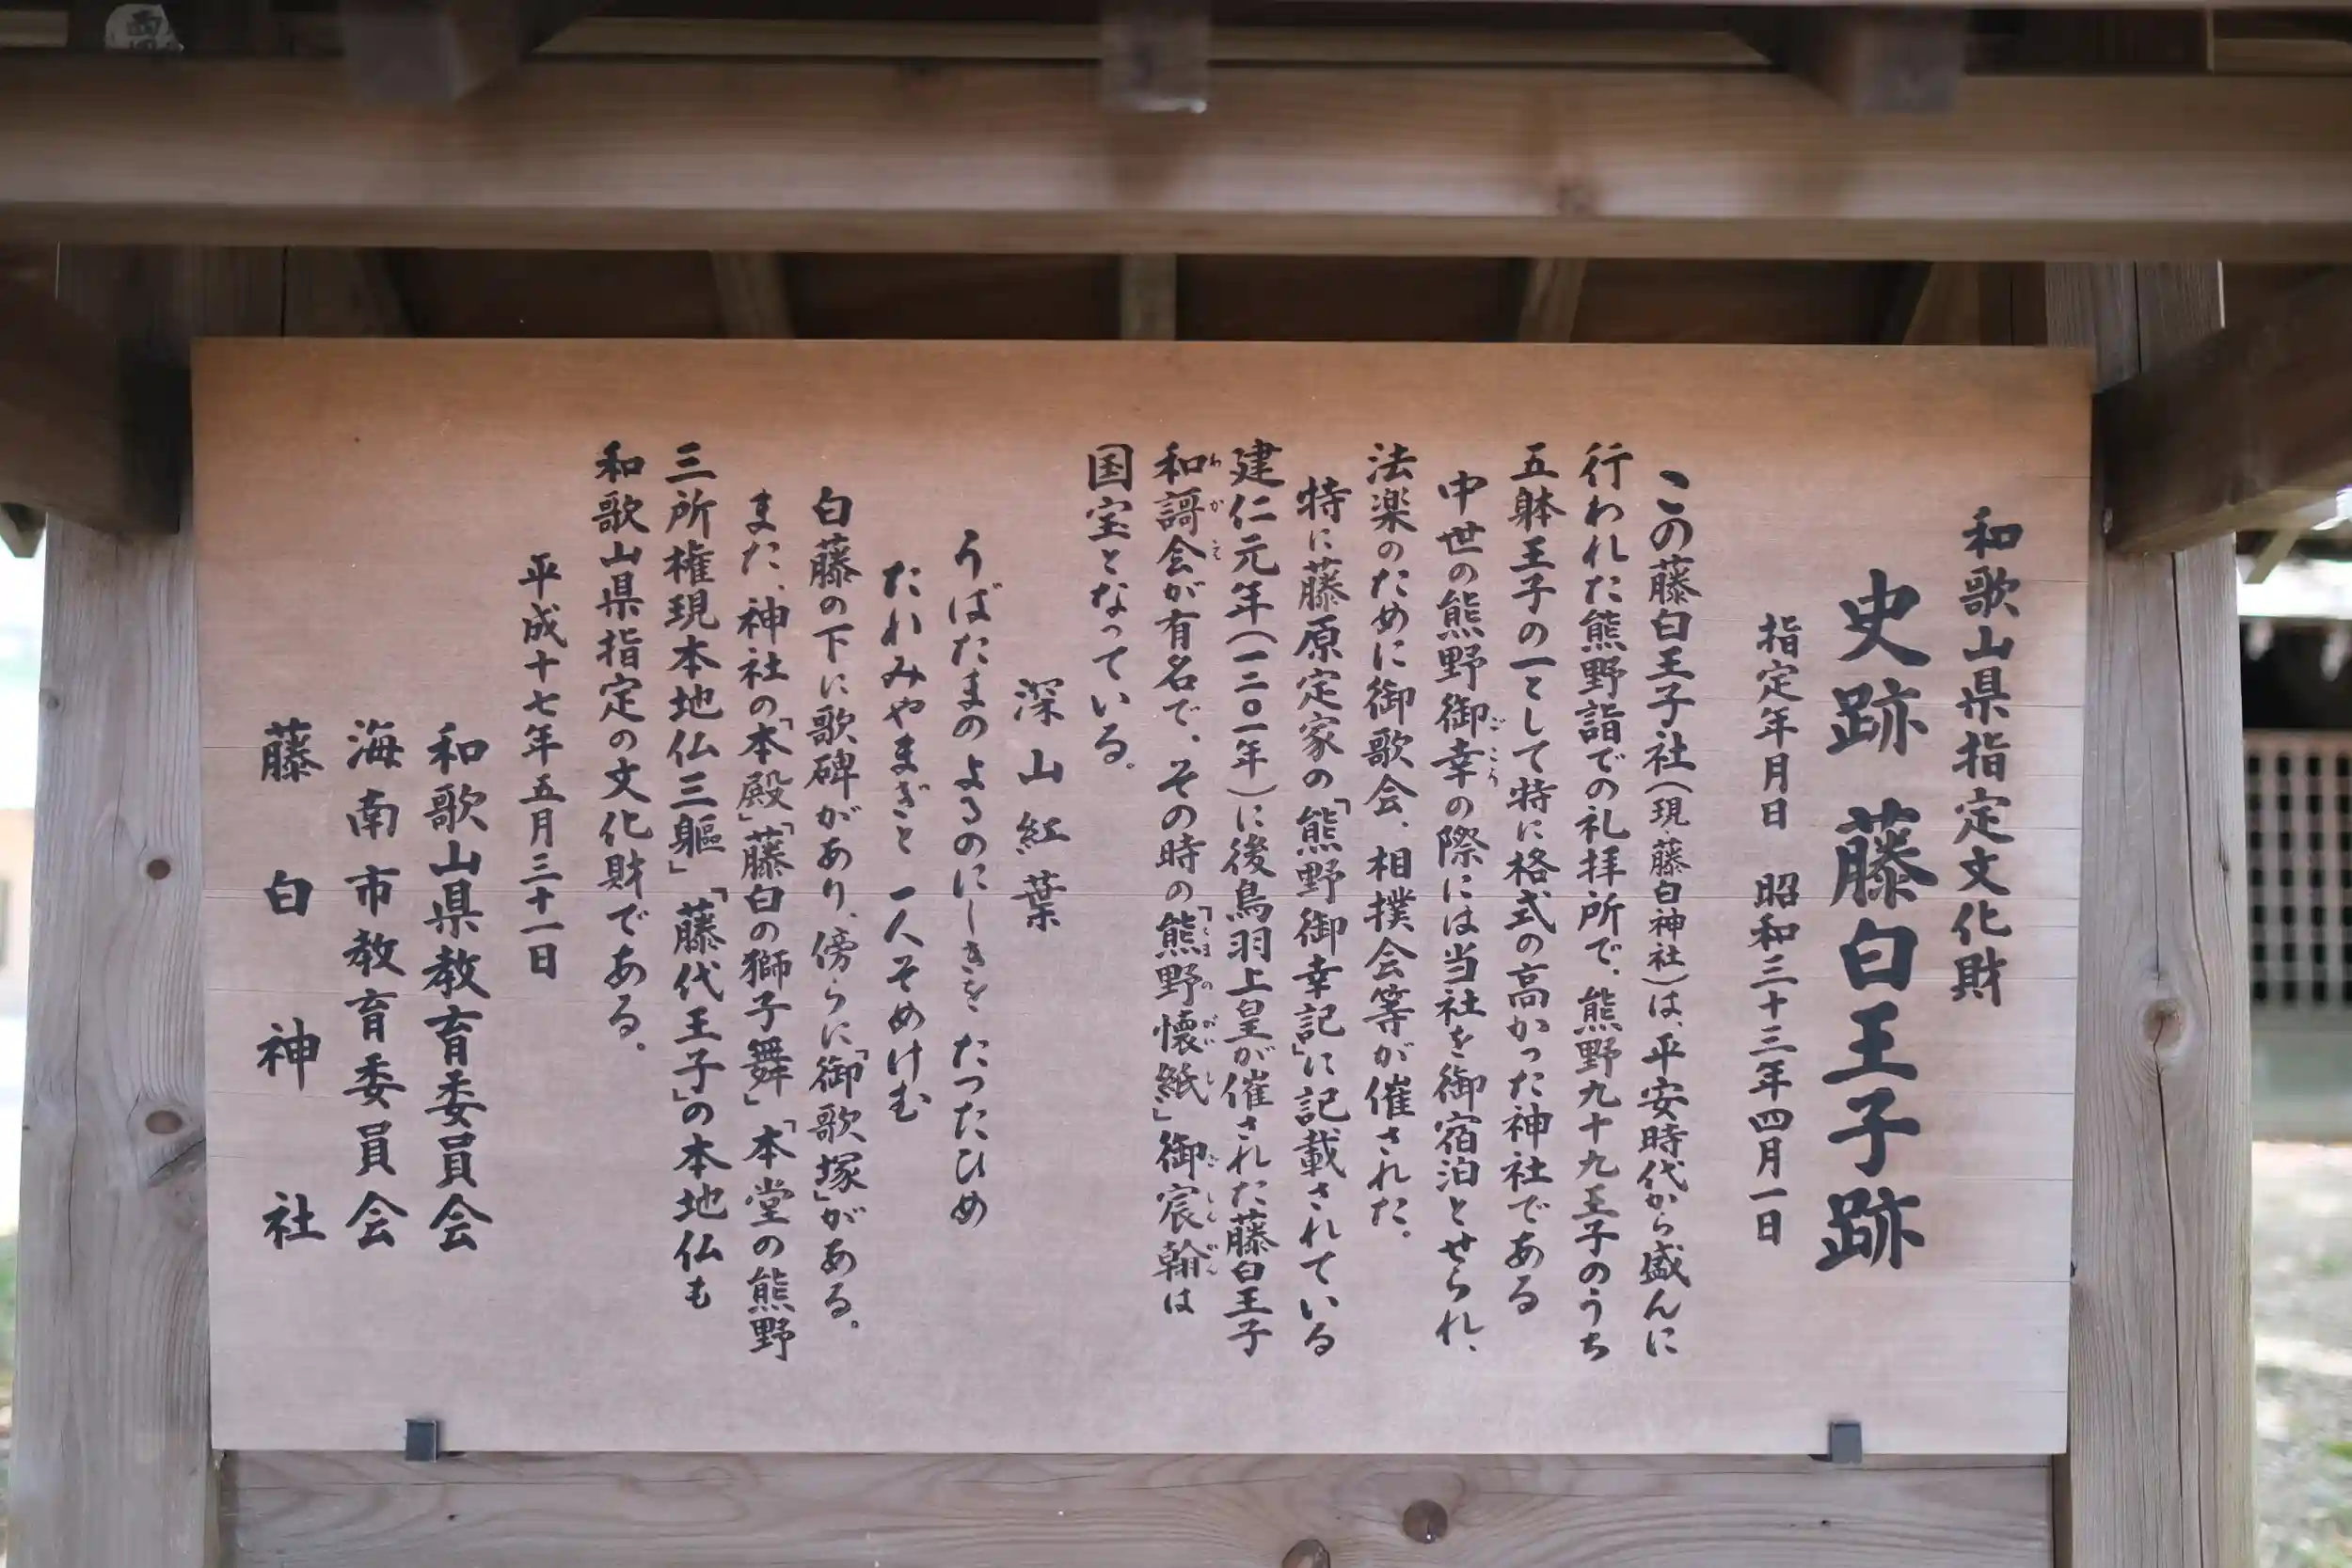 和歌山県指定文化財
史跡 藤白王子跡
指定年月日 昭和三十三年四月一日
この藤白王子社(現・藤白神社)は、平安時代から盛んに
行われた熊野詣での礼拝所で、熊野九十九王子のうち
五躰王子の一として特に格式の高かった神社である
中世の熊野御幸の際には当社を御宿泊とせられ、
法楽のために御歌会、相撲会等が催された。
特に藤原定家の「熊野御幸記」に記載されている
建仁元年(一二〇一年)に後鳥羽上皇が催された藤白王子
和謌会が有名で、その時の「熊野懐紙」御宸翰は
国宝となっている。
深山紅葉
うばたまのよるのにしきを たつたひめ
たれみやまぎと 一人そめけむ
白藤の下に歌碑があり、傍らに「御歌塚」がある。
また、神社の「本殿」「藤白の獅子舞」「本堂の熊野
三所権現本地仏三軀」「藤代王子」の本地仏も
和歌山県指定の文化財である。
平成十七年五月三十一日
和歌山県教育委員会
海南市教育委員会
藤白神社